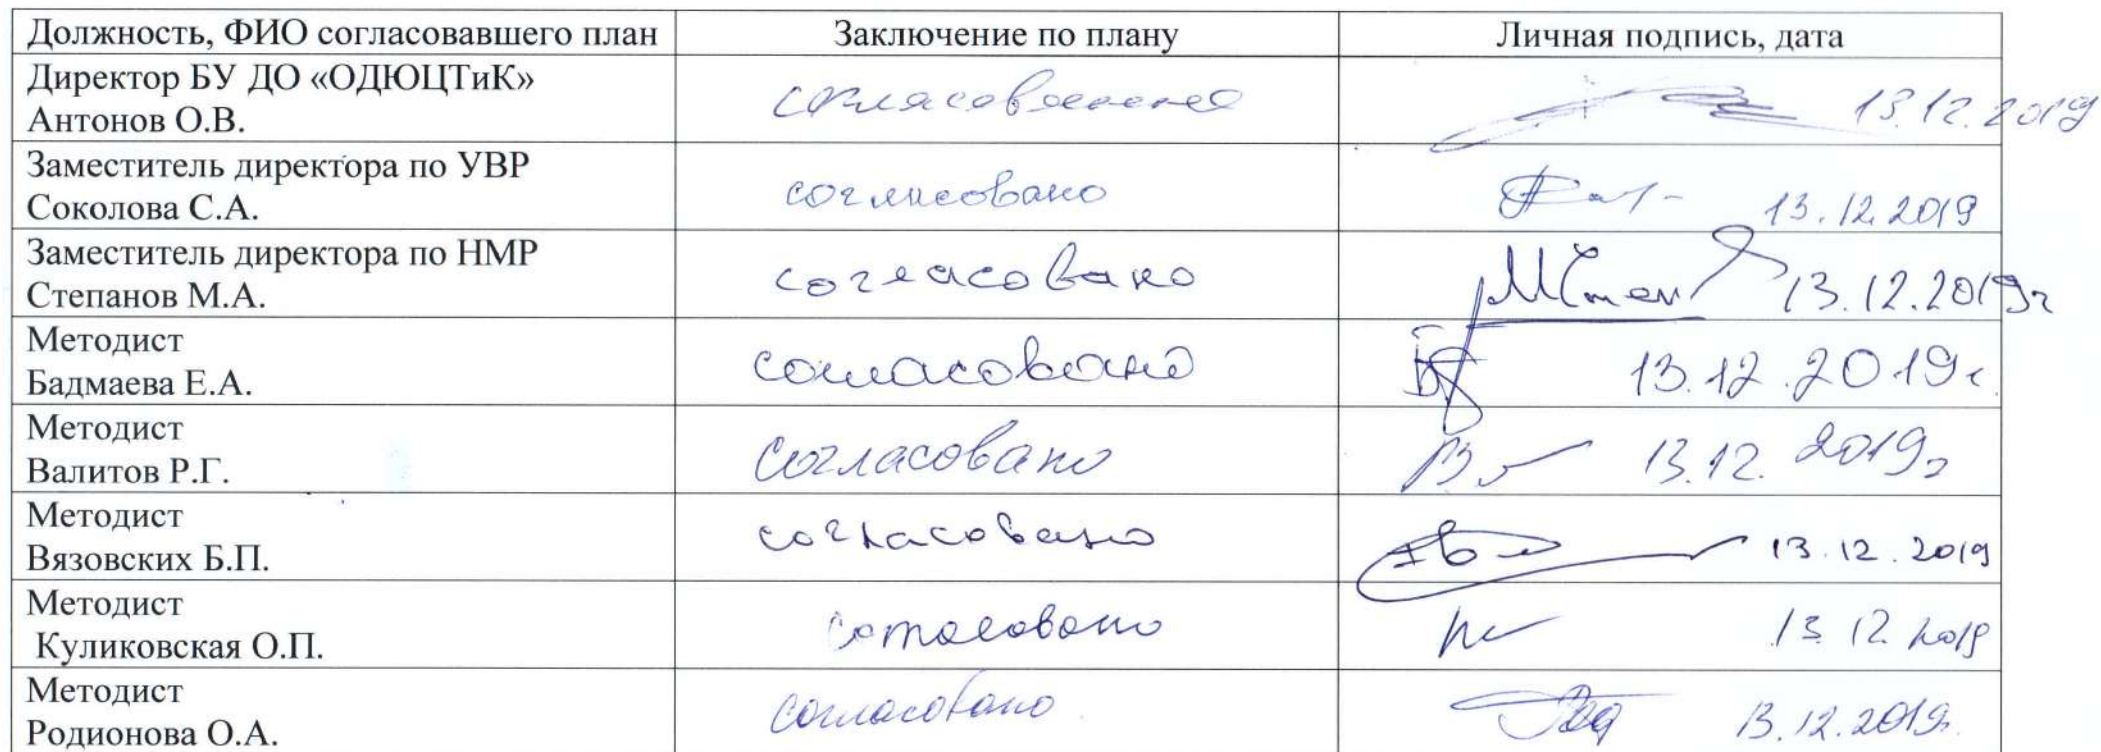 Должность, ФИО согласовавшего план Заключение по плану Личная подпись, дата
Директор БУ ДО «ОДЮЦТиК»
Антонов О.В. согласовано 13.12.2019
Заместитель директора по УВР
Соколова С.А. согласовано 13.12.2019
Заместитель директора по НМР
Степанов М.А. согласовано 13.12.2019г
Методист
Бадмаева Е.А. согласовано 13.12.2019г.
Методист
Валитов Р.Г. согласовано 13.12.2019г
Методист
Вязовских Б.П. согласовано 13.12.2019
Методист
Куликовская О.П. согласовано 13.12.2019
Методист
Родионова О.А. согласовано 13.12.2019г.